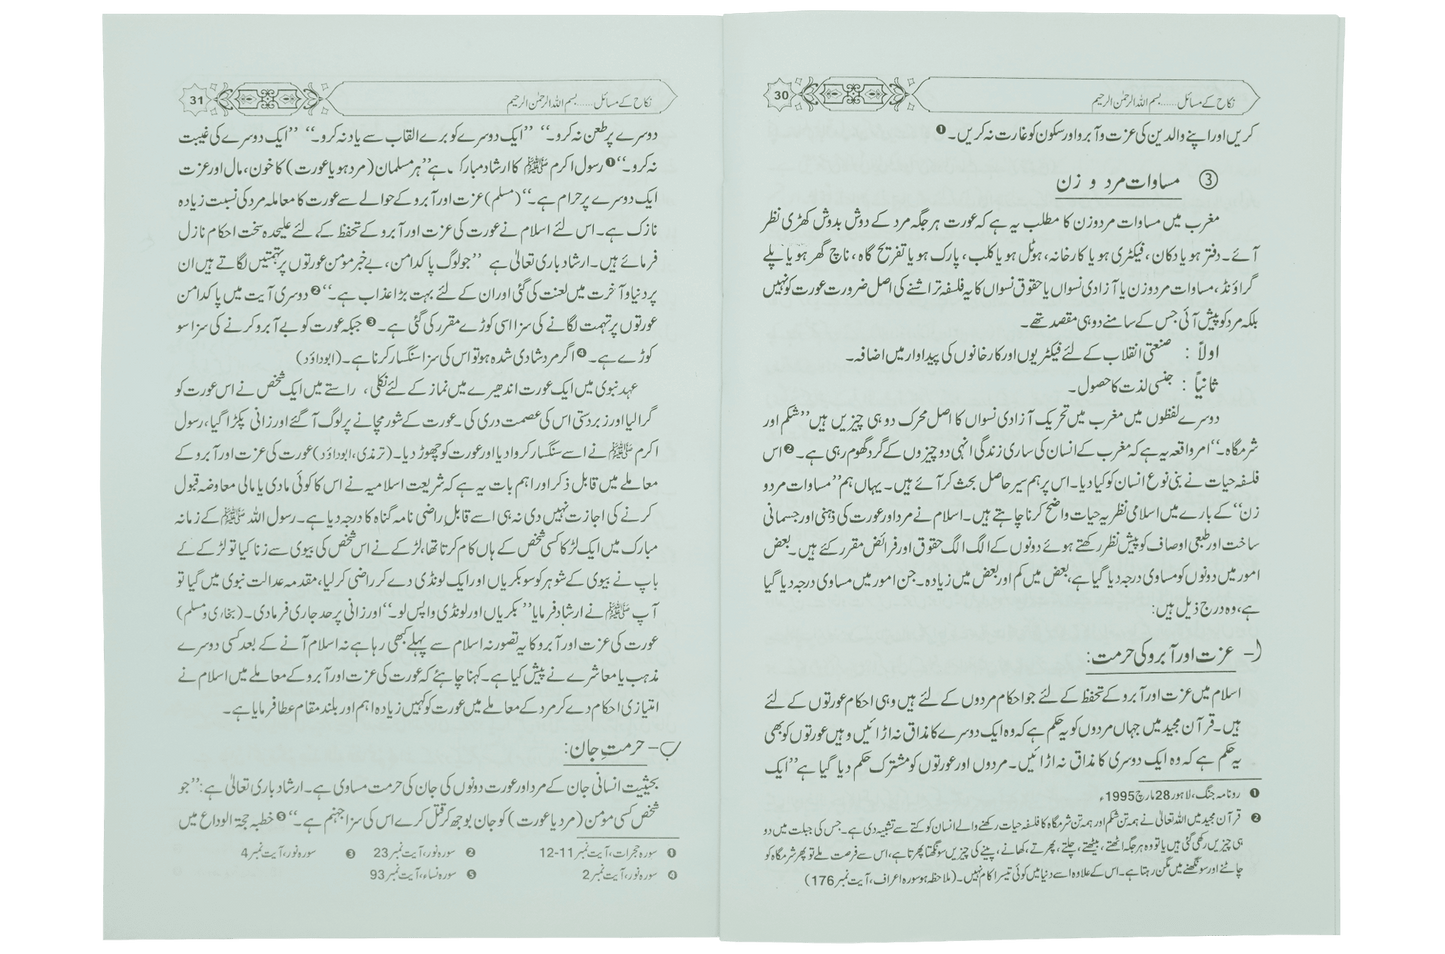 نکاح کے مسائل......بسم اللہ الرحمٰن الرحیم
30
کریں اور اپنے والدین کی عزت و آبرو اور سکون کو غارت نہ کریں۔❶
③ مساوات مرد و زن
مغرب میں مساوات مرد و زن کا مطلب یہ ہے کہ عورت ہر جگہ مرد کے دوش بدوش کھڑی نظر
آئے۔ دفتر ہو یا دکان، فیکٹری ہو یا کارخانہ، ہوٹل ہو یا کلب، پارک ہو یا تفریح گاہ، ناچ گھر ہو یا پلے
گراؤنڈ، مساوات مرد و زن یا آزادی نسواں یا حقوق نسواں کا یہ فلسفہ تراشنے کی اصل ضرورت عورت کو نہیں
بلکہ مرد کو پیش آئی جس کے سامنے دو ہی مقصد تھے۔
اولاً : صنعتی انقلاب کے لئے فیکٹریوں اور کارخانوں کی پیداوار میں اضافہ۔
ثانیاً : جنسی لذت کا حصول۔
دوسرے لفظوں میں مغرب میں تحریک آزادی نسواں کا اصل محرک دو ہی چیزیں ہیں ”شکم اور
شرمگاہ۔“ امر واقعہ یہ ہے کہ مغرب کے انسان کی ساری زندگی انہی دو چیزوں کے گرد گھوم رہی ہے۔❷ اس
فلسفہ حیات نے بنی نوع انسان کو کیا دیا۔ اس پر ہم سیر حاصل بحث کر آئے ہیں۔ یہاں ہم ”مساوات مرد و
زن“ کے بارے میں اسلامی نظریہ حیات واضح کرنا چاہتے ہیں۔ اسلام نے مرد اور عورت کی ذہنی اور جسمانی
ساخت اور طبعی اوصاف کو پیش نظر رکھتے ہوئے دونوں کے الگ الگ حقوق اور فرائض مقرر کئے ہیں۔ بعض
امور میں دونوں کو مساوی درجہ دیا گیا ہے، بعض میں کم اور بعض میں زیادہ۔ جن امور میں مساوی درجہ دیا گیا
ہے، وہ درج ذیل ہیں:
ا- عزت اور آبرو کی حرمت:
اسلام میں عزت اور آبرو کے تحفظ کے لئے جو احکام مردوں کے لئے ہیں وہی احکام عورتوں کے لئے
ہیں۔ قرآن مجید میں جہاں مردوں کو یہ حکم ہے کہ وہ ایک دوسرے کا مذاق نہ اڑائیں وہیں عورتوں کو بھی
یہ حکم ہے کہ وہ ایک دوسری کا مذاق نہ اڑائیں۔ مردوں اور عورتوں کو مشترک حکم دیا گیا ہے ”ایک
❶ روزنامہ جنگ، لاہور 28 مارچ 1995ء
❷ قرآن مجید میں اللہ تعالیٰ نے ہمہ تن شکم اور ہمہ تن شرمگاہ کا فلسفہ حیات رکھنے والے انسان کو کتے سے تشبیہ دی ہے۔ جس کی جبلت میں دو
ہی چیزیں رکھی گئی ہیں یا تو وہ ہر جگہ اٹھتے، بیٹھتے، چلتے، پھرتے، کھانے، پینے کی چیزیں سونگھتا پھرتا ہے، اس سے فرصت ملے تو پھر شرمگاہ کو
چاٹنے اور سونگھنے میں مگن رہتا ہے۔ اس کے علاوہ اسے دنیا میں کوئی تیسرا کام نہیں۔ (ملاحظہ ہو سورہ اعراف، آیت نمبر 176)
نکاح کے مسائل......بسم اللہ الرحمٰن الرحیم
31
دوسرے پر طعن نہ کرو۔“ ”ایک دوسرے کو برے القاب سے یاد نہ کرو۔“ ”ایک دوسرے کی غیبت
نہ کرو۔“❶ رسول اکرم ﷺ کا ارشاد مبارک ہے ”ہر مسلمان (مرد ہو یا عورت) کا خون، مال اور عزت
ایک دوسرے پر حرام ہے۔“ (مسلم) عزت اور آبرو کے حوالے سے عورت کا معاملہ مرد کی نسبت زیادہ
نازک ہے۔ اس لئے اسلام نے عورت کی عزت اور آبرو کے تحفظ کے لئے علیحدہ سخت احکام نازل
فرمائے ہیں۔ ارشاد باری تعالیٰ ہے ”جو لوگ پاکدامن، بے خبر مومن عورتوں پر تہمتیں لگاتے ہیں ان
پر دنیا و آخرت میں لعنت کی گئی اور ان کے لئے بہت بڑا عذاب ہے۔“❷ دوسری آیت میں پاکدامن
عورتوں پر تہمت لگانے کی سزا اسی کوڑے مقرر کی گئی ہے۔❸ جبکہ عورت کو بے آبرو کرنے کی سزا سو
کوڑے ہے۔❹ اگر مرد شادی شدہ ہو تو اس کی سزا سنگسار کرنا ہے۔ (ابوداؤد)
عہد نبوی میں ایک عورت اندھیرے میں نماز کے لئے نکلی، راستے میں ایک شخص نے اس عورت کو
گرا لیا اور زبردستی اس کی عصمت دری کی۔ عورت کے شور مچانے پر لوگ آ گئے اور زانی پکڑا گیا، رسول
اکرم ﷺ نے اسے سنگسار کروا دیا اور عورت کو چھوڑ دیا۔ (ترمذی، ابوداؤد) عورت کی عزت اور آبرو کے
معاملے میں قابل ذکر اور اہم بات یہ ہے کہ شریعت اسلامیہ نے اس کا کوئی مادی یا مالی معاوضہ قبول
کرنے کی اجازت نہیں دی نہ ہی اسے قابلِ راضی نامہ گناہ کا درجہ دیا ہے۔ رسول اللہ ﷺ کے زمانہ
مبارک میں ایک لڑکا کسی شخص کے ہاں کام کرتا تھا، لڑکے نے اس شخص کی بیوی سے زنا کیا تو لڑکے کے
باپ نے بیوی کے شوہر کو سو بکریاں اور ایک لونڈی دے کر راضی کر لیا، مقدمہ عدالت نبوی میں گیا تو
آپ ﷺ نے ارشاد فرمایا ”بکریاں اور لونڈی واپس لو۔“ اور زانی پر حد جاری فرما دی۔ (بخاری و مسلم)
عورت کی عزت اور آبرو کا یہ تصور نہ اسلام سے پہلے کبھی رہا ہے نہ اسلام آنے کے بعد کسی دوسرے
مذہب یا معاشرے نے پیش کیا ہے۔ کہنا چاہئے کہ عورت کی عزت اور آبرو کے معاملے میں اسلام نے
امتیازی احکام دے کر مرد کے معاملے میں عورت کو کہیں زیادہ اہم اور بلند مقام عطا فرمایا ہے۔
ب- حرمتِ جان:
بحیثیت انسانی جان کے مرد اور عورت دونوں کی جان کی حرمت مساوی ہے۔ ارشاد باری تعالیٰ ہے: ”جو
شخص کسی مؤمن (مرد یا عورت) کو جان بوجھ کر قتل کرے اس کی سزا جہنم ہے۔“❺ خطبہ حجۃ الوداع میں
❶ سورہ حجرات، آیت نمبر 11-12 ❷ سورہ نور، آیت نمبر 23 ❸ سورہ نور، آیت نمبر 4
❹ سورہ نور، آیت نمبر 2 ❺ سورہ نساء، آیت نمبر 93